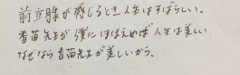 前立腺が感じるとき人生はすばらしい。
香苗先生が僕にほほえめば人生は美しい
なぜなら香苗先生が美しいから。